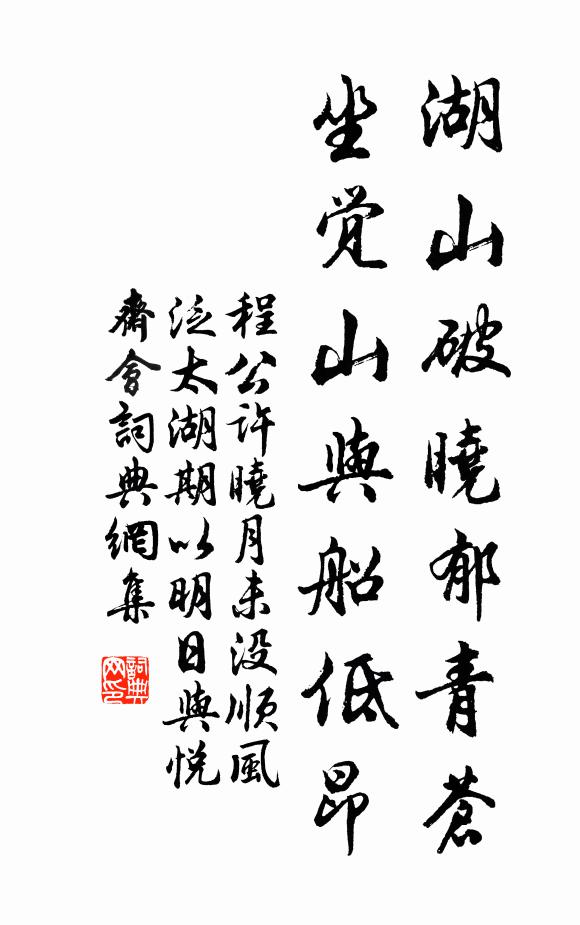 湖山破曉郁青蒼
坐覺山與船低昂
程公許曉月未没順風
泛太湖期以明日與悅
齋會詞典網集
詞典网印